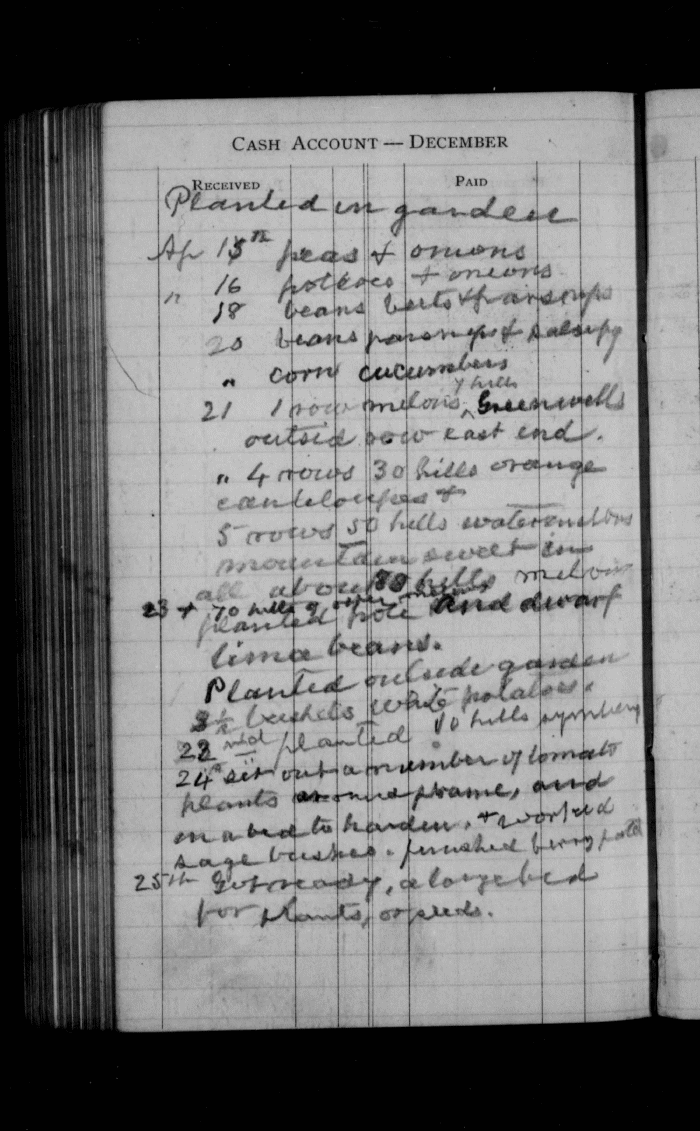 CASH ACCOUNT — DECEMBER
RECEIVED PAID
Planted in garden
Ap 15th peas & onions
" 16 potatoes + onions
18 beans beets & parsnips
20 beans parsnips & salsify
" corn cucumbers
7 hills
21 1 row melons Greenwells
outsid row east end.
" 4 rows 30 hills orange
canteloupes &
5 rows 50 hills watermelons
mountain sweet in
all about 80 hills melons
23 + 70 hills of other melons
planted pole and dwarf
lima beans.
Planted outside garden
bushels white potatoes.
22nd planted 10 hills
24 set out a number of tomato
plants around frame, and
in a bed to harden, + worked
sage bushes. finished berry
25th Got ready, a large bed
for plants, or seeds.